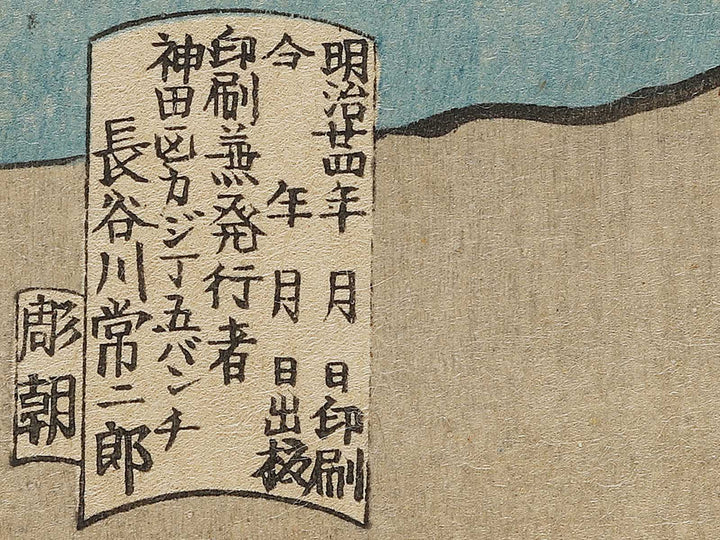 明治廿四年 月 日印刷
仝年 月 日出板
印刷兼発行者
神田区カジ丁五バンチ
長谷川常二郎
彫朝